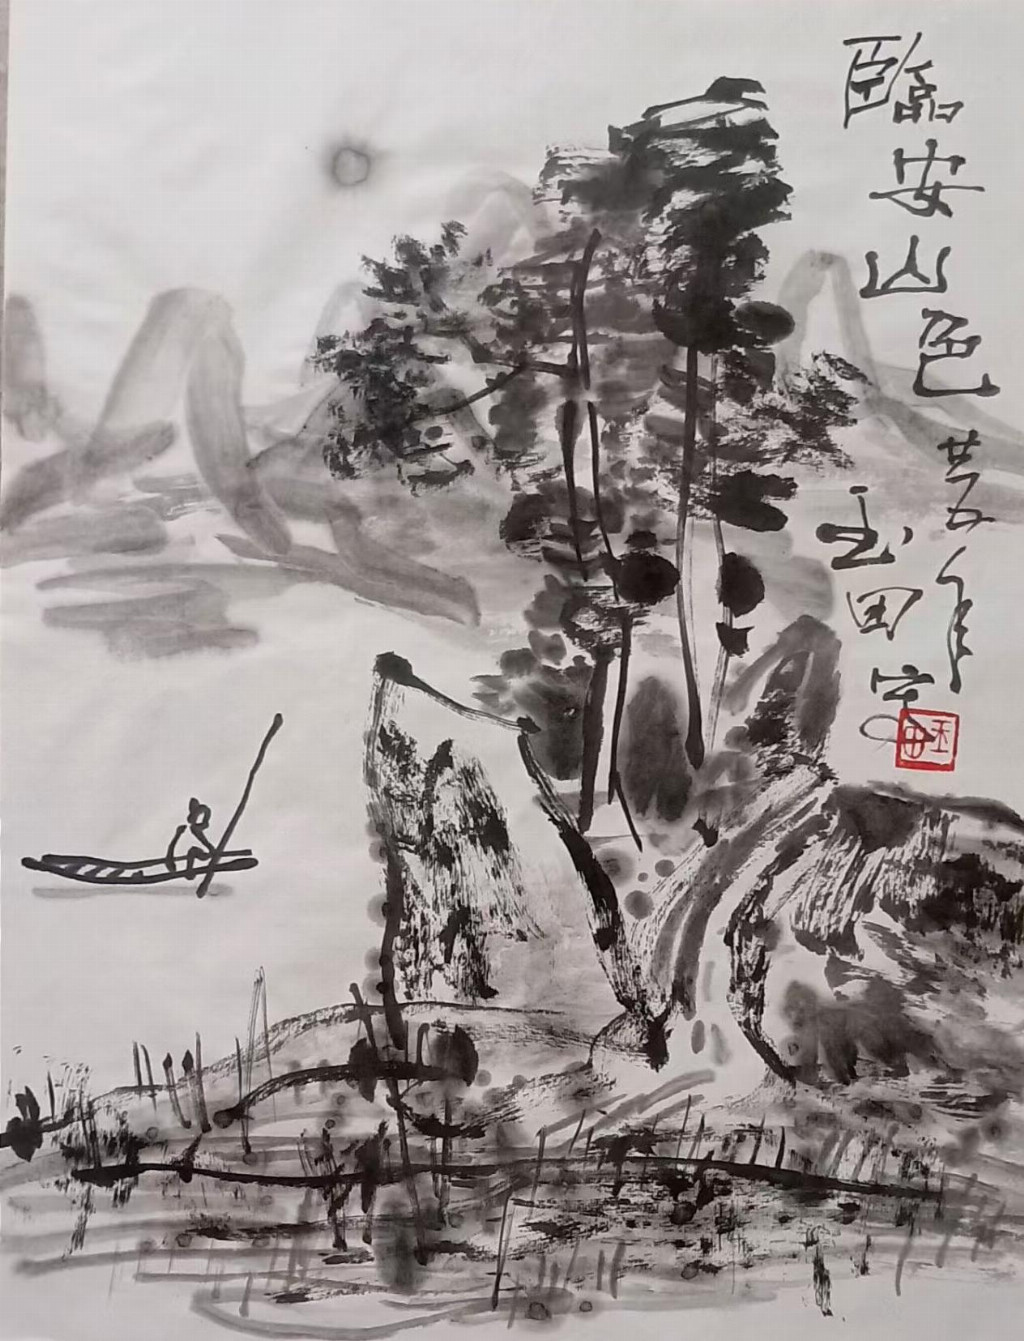 臨安山色
廿五年
玉田寫
玉田